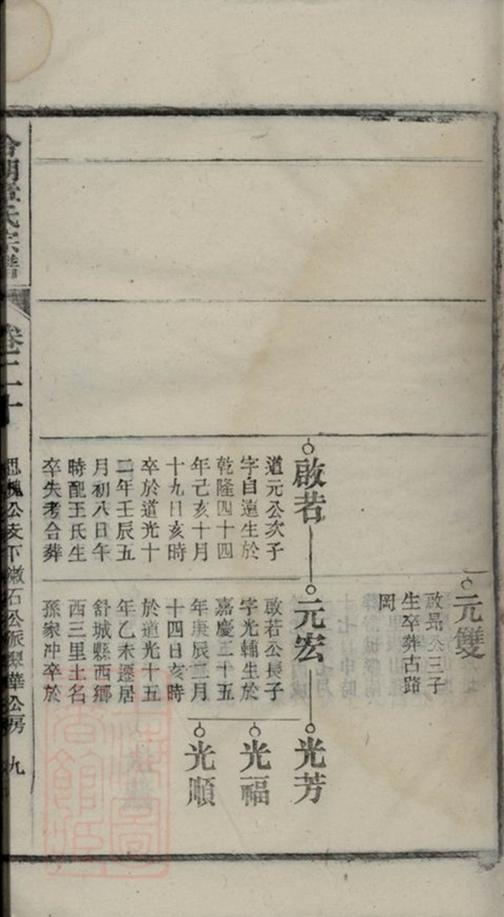 元雙
啟昺公三子
生卒葬古路
岡
啟若
道元公次子
字自遠生於
乾隆四十四
年己亥十月
十九日亥時
卒於道光十
二年壬辰五
月初八日午
時配王氏生
卒失考合葬
元宏
啟若公長子
字光輔生於
嘉慶二十五
年庚辰二月
十四日亥時
於道光十五
年乙未遷居
舒城縣西鄉
西三里土名
孫家冲卒於
光芳
光福
光順
氏宗譜
卷二十
思槐公支下漱石公派翠華公房 九